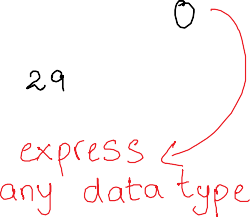 0
29
express
any data type